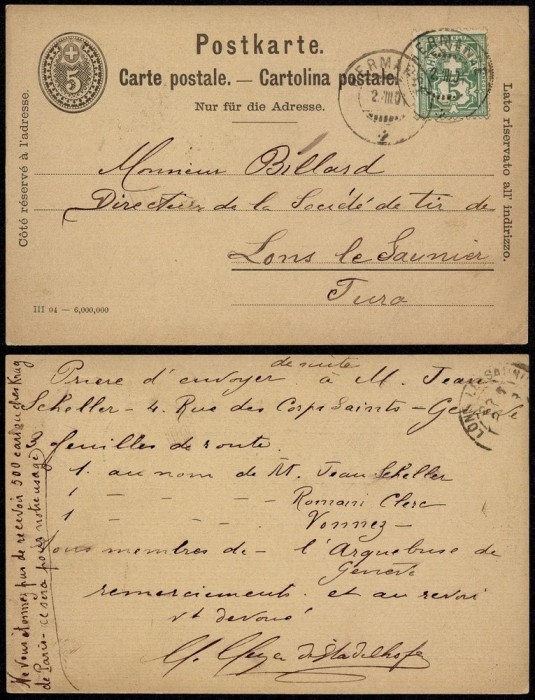 Postkarte.
Carte postale. — Cartolina postale.
Nur für die Adresse.
5
Côté réservé à l'adresse.
Lato riservato all' indirizzo.
2.III.05
Monsieur Billard
Directeur de la Société de tir de
Lons le Saunier
Jura
III 04 — 6,000,000
de suite
Priere d'envoyer à M. Jean
Scheller - 4. Rue des Corps Saints - Genève
3 feuilles de route.
1. au nom de M. Jean Scheller
1 - - - Romain Clerc
1 - - - Vonnez -
Tous membres de - l'Arquebuse de
Genève
remerciements et au revoir
vt devoué
Meyer de Stadelhofen
Ne vous étonnez pas de recevoir 500 cartouches Krug
de Paris - ce sera pour notre usage
LONS